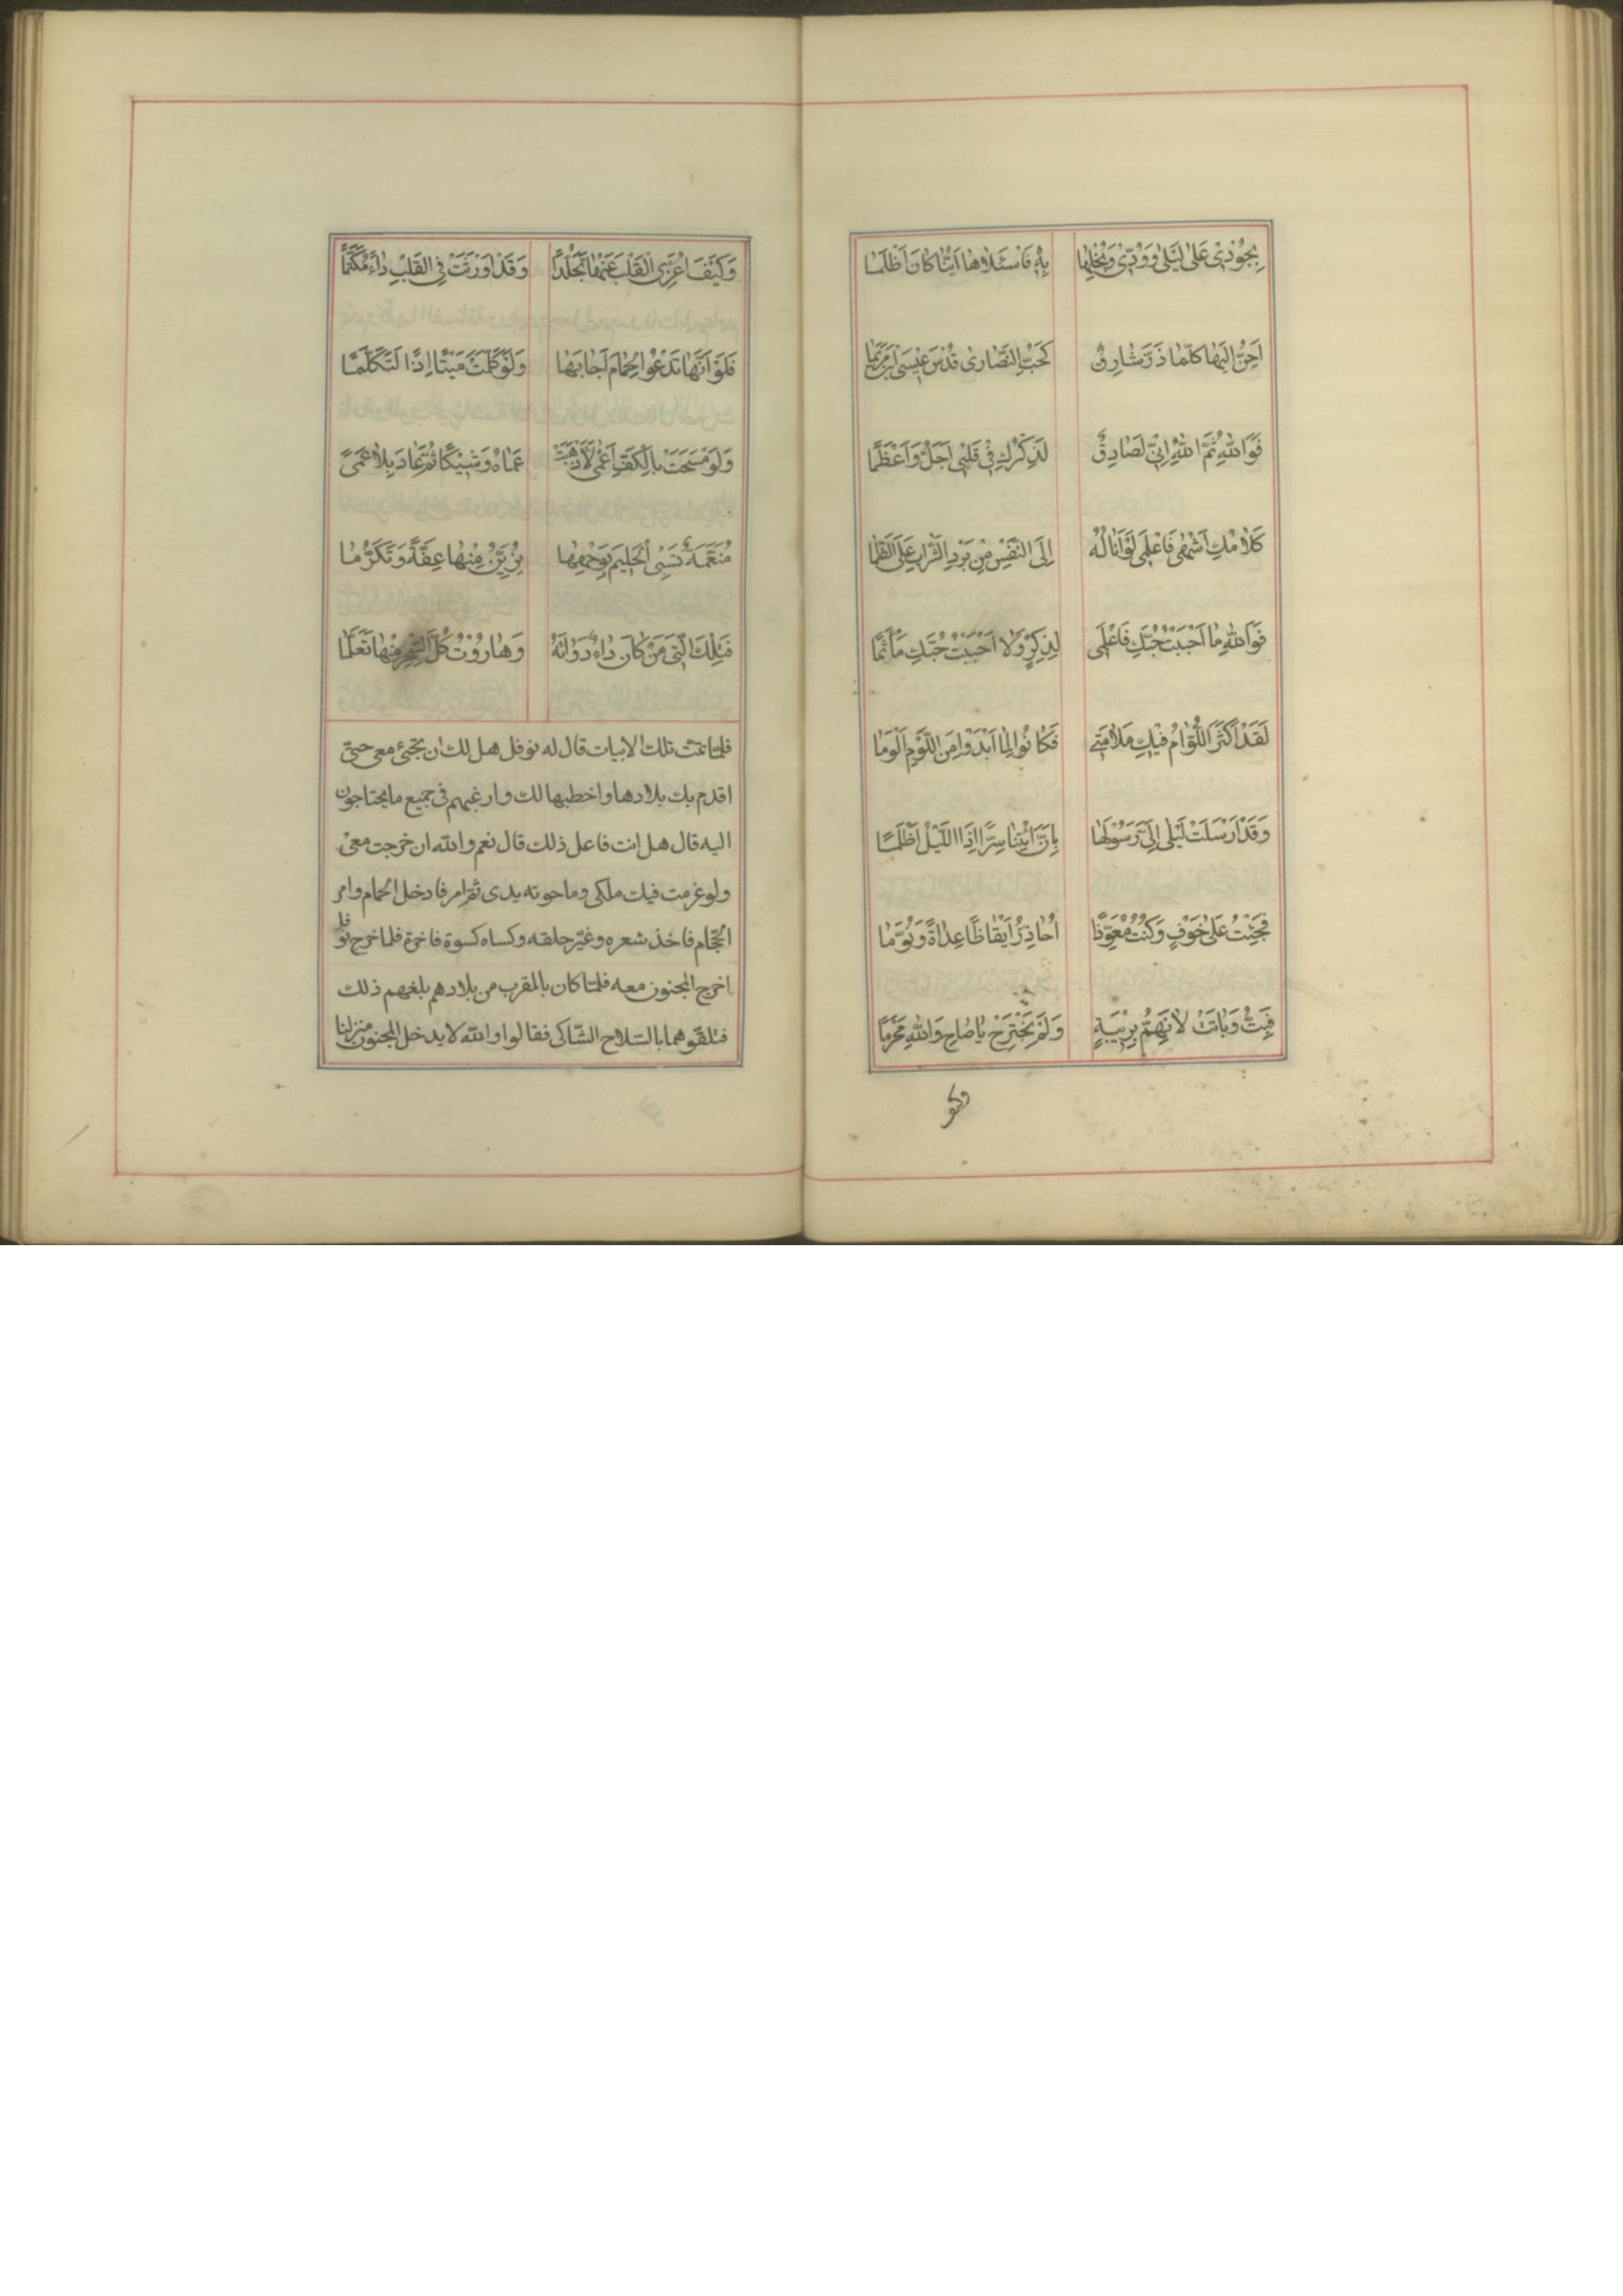 بِجُوْدِيْ عَلٰى لَيْلٰى وَوُدِّيْ وَبُخْلِهٰا بِهِ فَاسْئَلاٰهٰا اَيُّنٰا كٰانَ اَظْلَمٰا
اَحِنُّ اِلَيْهٰا كُلَّمٰا ذَرَّ شٰارِقٌ كَحُبِّ النَّصٰارىٰ قُدْسَ عِيْسَى ابْنِ مَرْيَمٰا
فَوَاللّٰهِ ثُمَّ اللّٰهِ اِنِّيْ لَصٰادِقٌ لَذِكْرُكِ فِيْ قَلْبِيْ اَجَلُّ وَاَعْظَمٰا
كَلاٰمُكِ اَشْهٰى فَاعْلَمِيْ لَوْ اَنٰالُهُ اِلَى النَّفْسِ مِنْ بَرْدِ الشَّرٰابِ عَلَى الظَّمٰا
فَوَاللّٰهِ مٰا اَحْبَبْتُ حُبَّكِ فَاعْلَمِيْ لِذِكْرٍ وَلاٰ اَحْبَبْتُ حُبَّكِ مَأْثَمٰا
لَقَدْ اَكْثَرَ اللُّوّٰامُ فِيْكِ مَلاٰمَتِيْ فَكٰانُوْا لِمٰا اَبْدَوْا مِنَ اللَّوْمِ اَلْوَمٰا
وَقَدْ اَرْسَلَتْ لَيْلٰى اِلَيَّ رَسُوْلَهٰا بِاَنْ اٰئْتِنٰا سِرًّا اِذَا اللَّيْلُ اَظْلَمٰا
فَجِئْتُ عَلٰى خَوْفٍ وَكُنْتُ مُعَوَّذًا اُحٰاذِرُ اَيْقٰاظًا عِدٰاةً وَنُوَّمٰا
فَبِتُّ وَبٰاتَتْ لاٰ نَهُمُّ بِرِيْبَةٍ وَلَمْ نَجْتَرِحْ يٰا صٰاحِ وَاللّٰهِ مَحْرَمًا
وكيف
وَكَيْفَ اُعَزِّي الْقَلْبَ عَنْهٰا تَجَلُّدًا وَقَدْ اَوْرَثَتْ فِي الْقَلْبِ دٰاءً مُكَتَّمًا
فَلَوْ اَنَّهٰا تَدْعُوا الْحِمٰامَ اَجٰابَهٰا وَلَوْ كَلَّمَتْ مَيْتًا اِذًا لَتَكَلَّمٰا
وَلَوْ مَسَحَتْ بِالْكَفِّ اَعْمٰى لَاَذْهَبَتْ عَمٰاهُ وَشِيْكًا ثُمَّ عٰادَ بِلاٰ عَمًى
مُنَعَّمَةٌ تَسْبِي الْحَلِيْمَ بِوَجْهِهٰا يُزَيِّنُ مِنْهٰا عِفَّةً وَتَكَرُّمٰا
فَتِلْكَ الَّتِيْ مَنْ كٰانَ دٰاءٌ دَوٰائَهُ وَهٰارُوْتُ كُلَّ السِّحْرِ مِنْهٰا تَعَلَّمٰا
فلما تمت تلك الابيات قال له نوفل هل لك ان تجيئ معي حتى
اقدم بك بلادها واخطبها لك وارغبهم في جميع ما يحتاجون
اليه قال هل انت فاعل ذلك قال نعم والله ان خرجت معي
ولو غرمت فيك ملكى وما حوته يدى ثم امر فادخل الحمام وامر
الحجام فاخذ شعره وغيّر حلقه وكساه كسوة فاخرة فلما خرج نوفل
اخرج المجنون معه فلما كان بالمقرب من بلادهم بلغهم ذلك
فتلقّوهما بالسّلاح الشّاكى فقالوا والله لا يدخل المجنون منزلنا